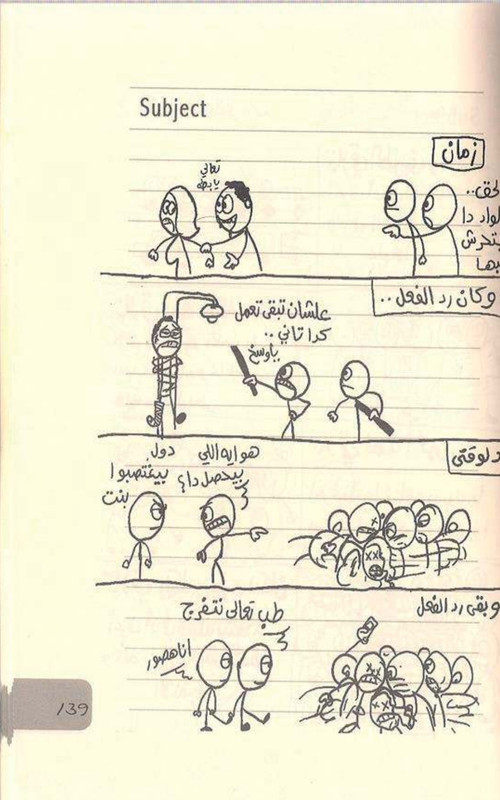 Subject
زمان
تعالي
يا بطه
إلحق..
الواد دا
بيتحرش
بيها
وكان رد الفعل..
علشان تبقى تعمل
كدا تاني..
يا وسخ
دلوقتي
هو ايه اللي
بيحصل دا؟
دول
بيغتصبوا
بنت
وبقى رد الفعل
طب تعالى نتفرج
انا هصور
139